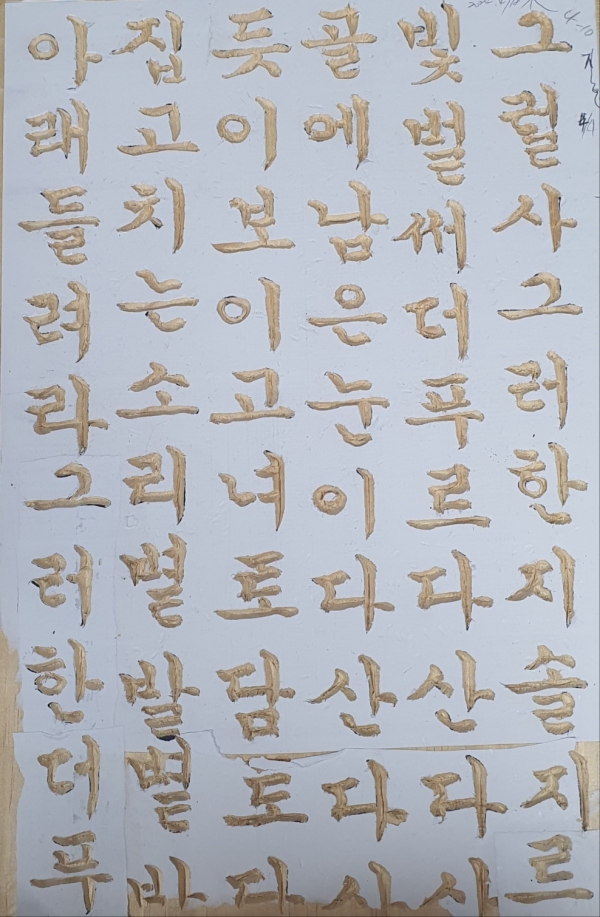 4.10
그럴사그러한지솔지르
빛벌써더푸르다산다
골에남은눈이다산다
듯이보이고녀토담토
집고치는소리볕발볕
아래들려라그러한더푸